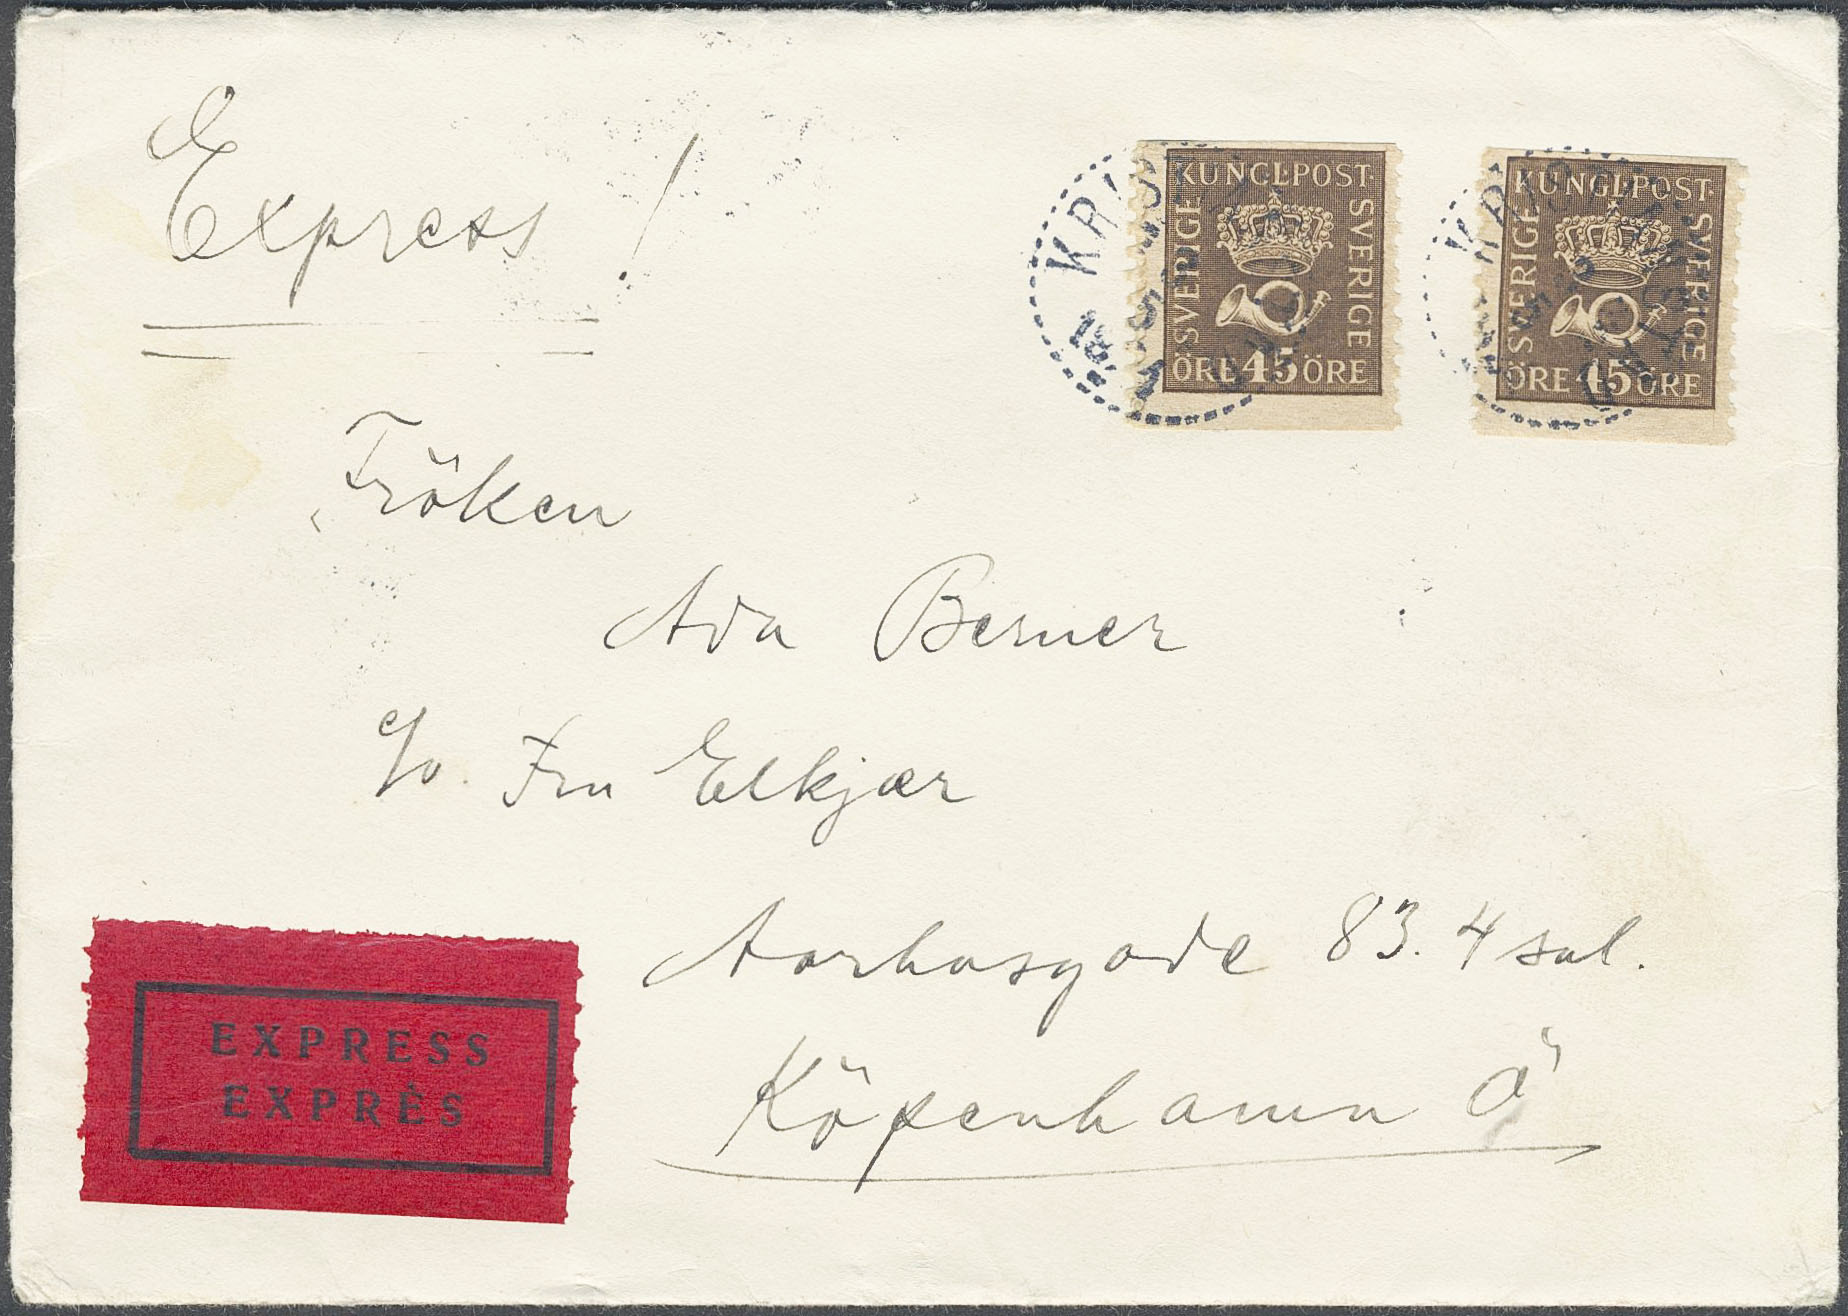 Express!
KUNGLPOST
SVERIGE
SVERIGE
ÖRE 45 ÖRE
KUNGLPOST
SVERIGE
SVERIGE
ÖRE 45 ÖRE
Fröken
Ada Berner
c/o. Fru Elkjær
Aarhusgade 83. 4 sal.
Köpenhamn Ö
EXPRESS
EXPRÈS